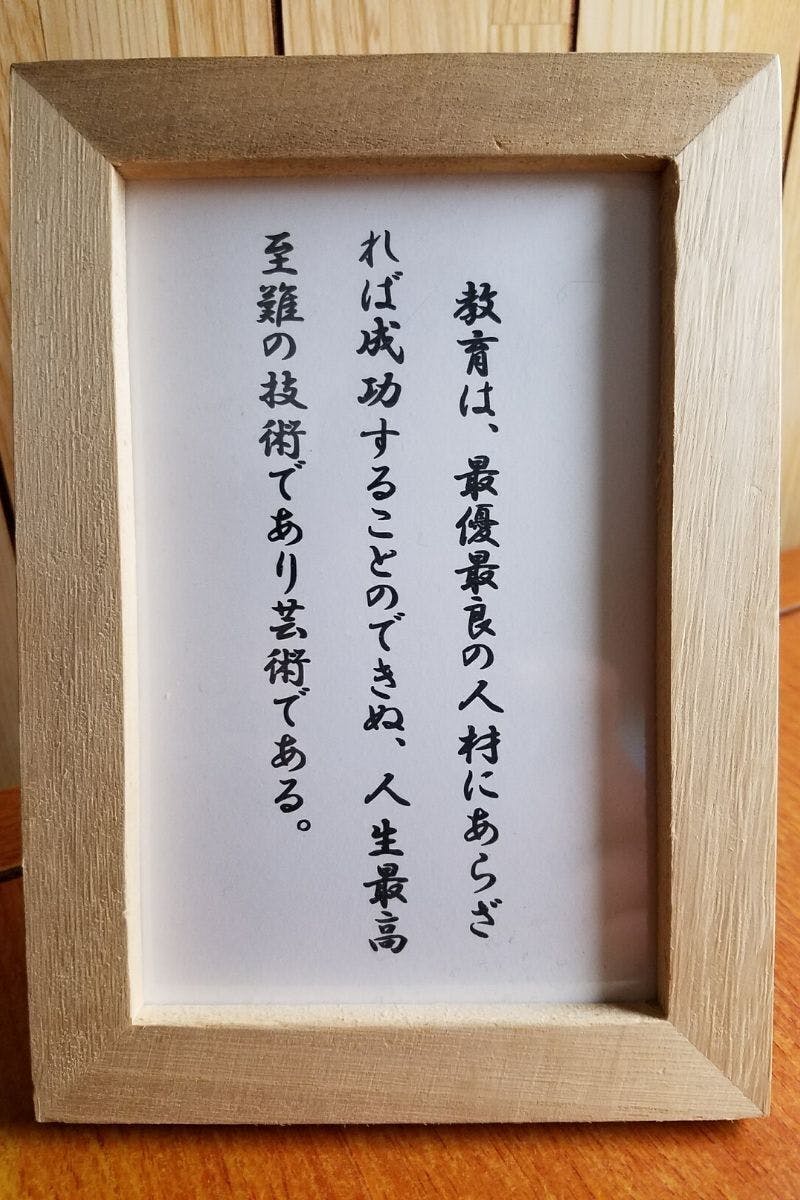 教育は、最優最良の人材にあらざ
れば成功することのできぬ、人生最高
至難の技術であり芸術である。